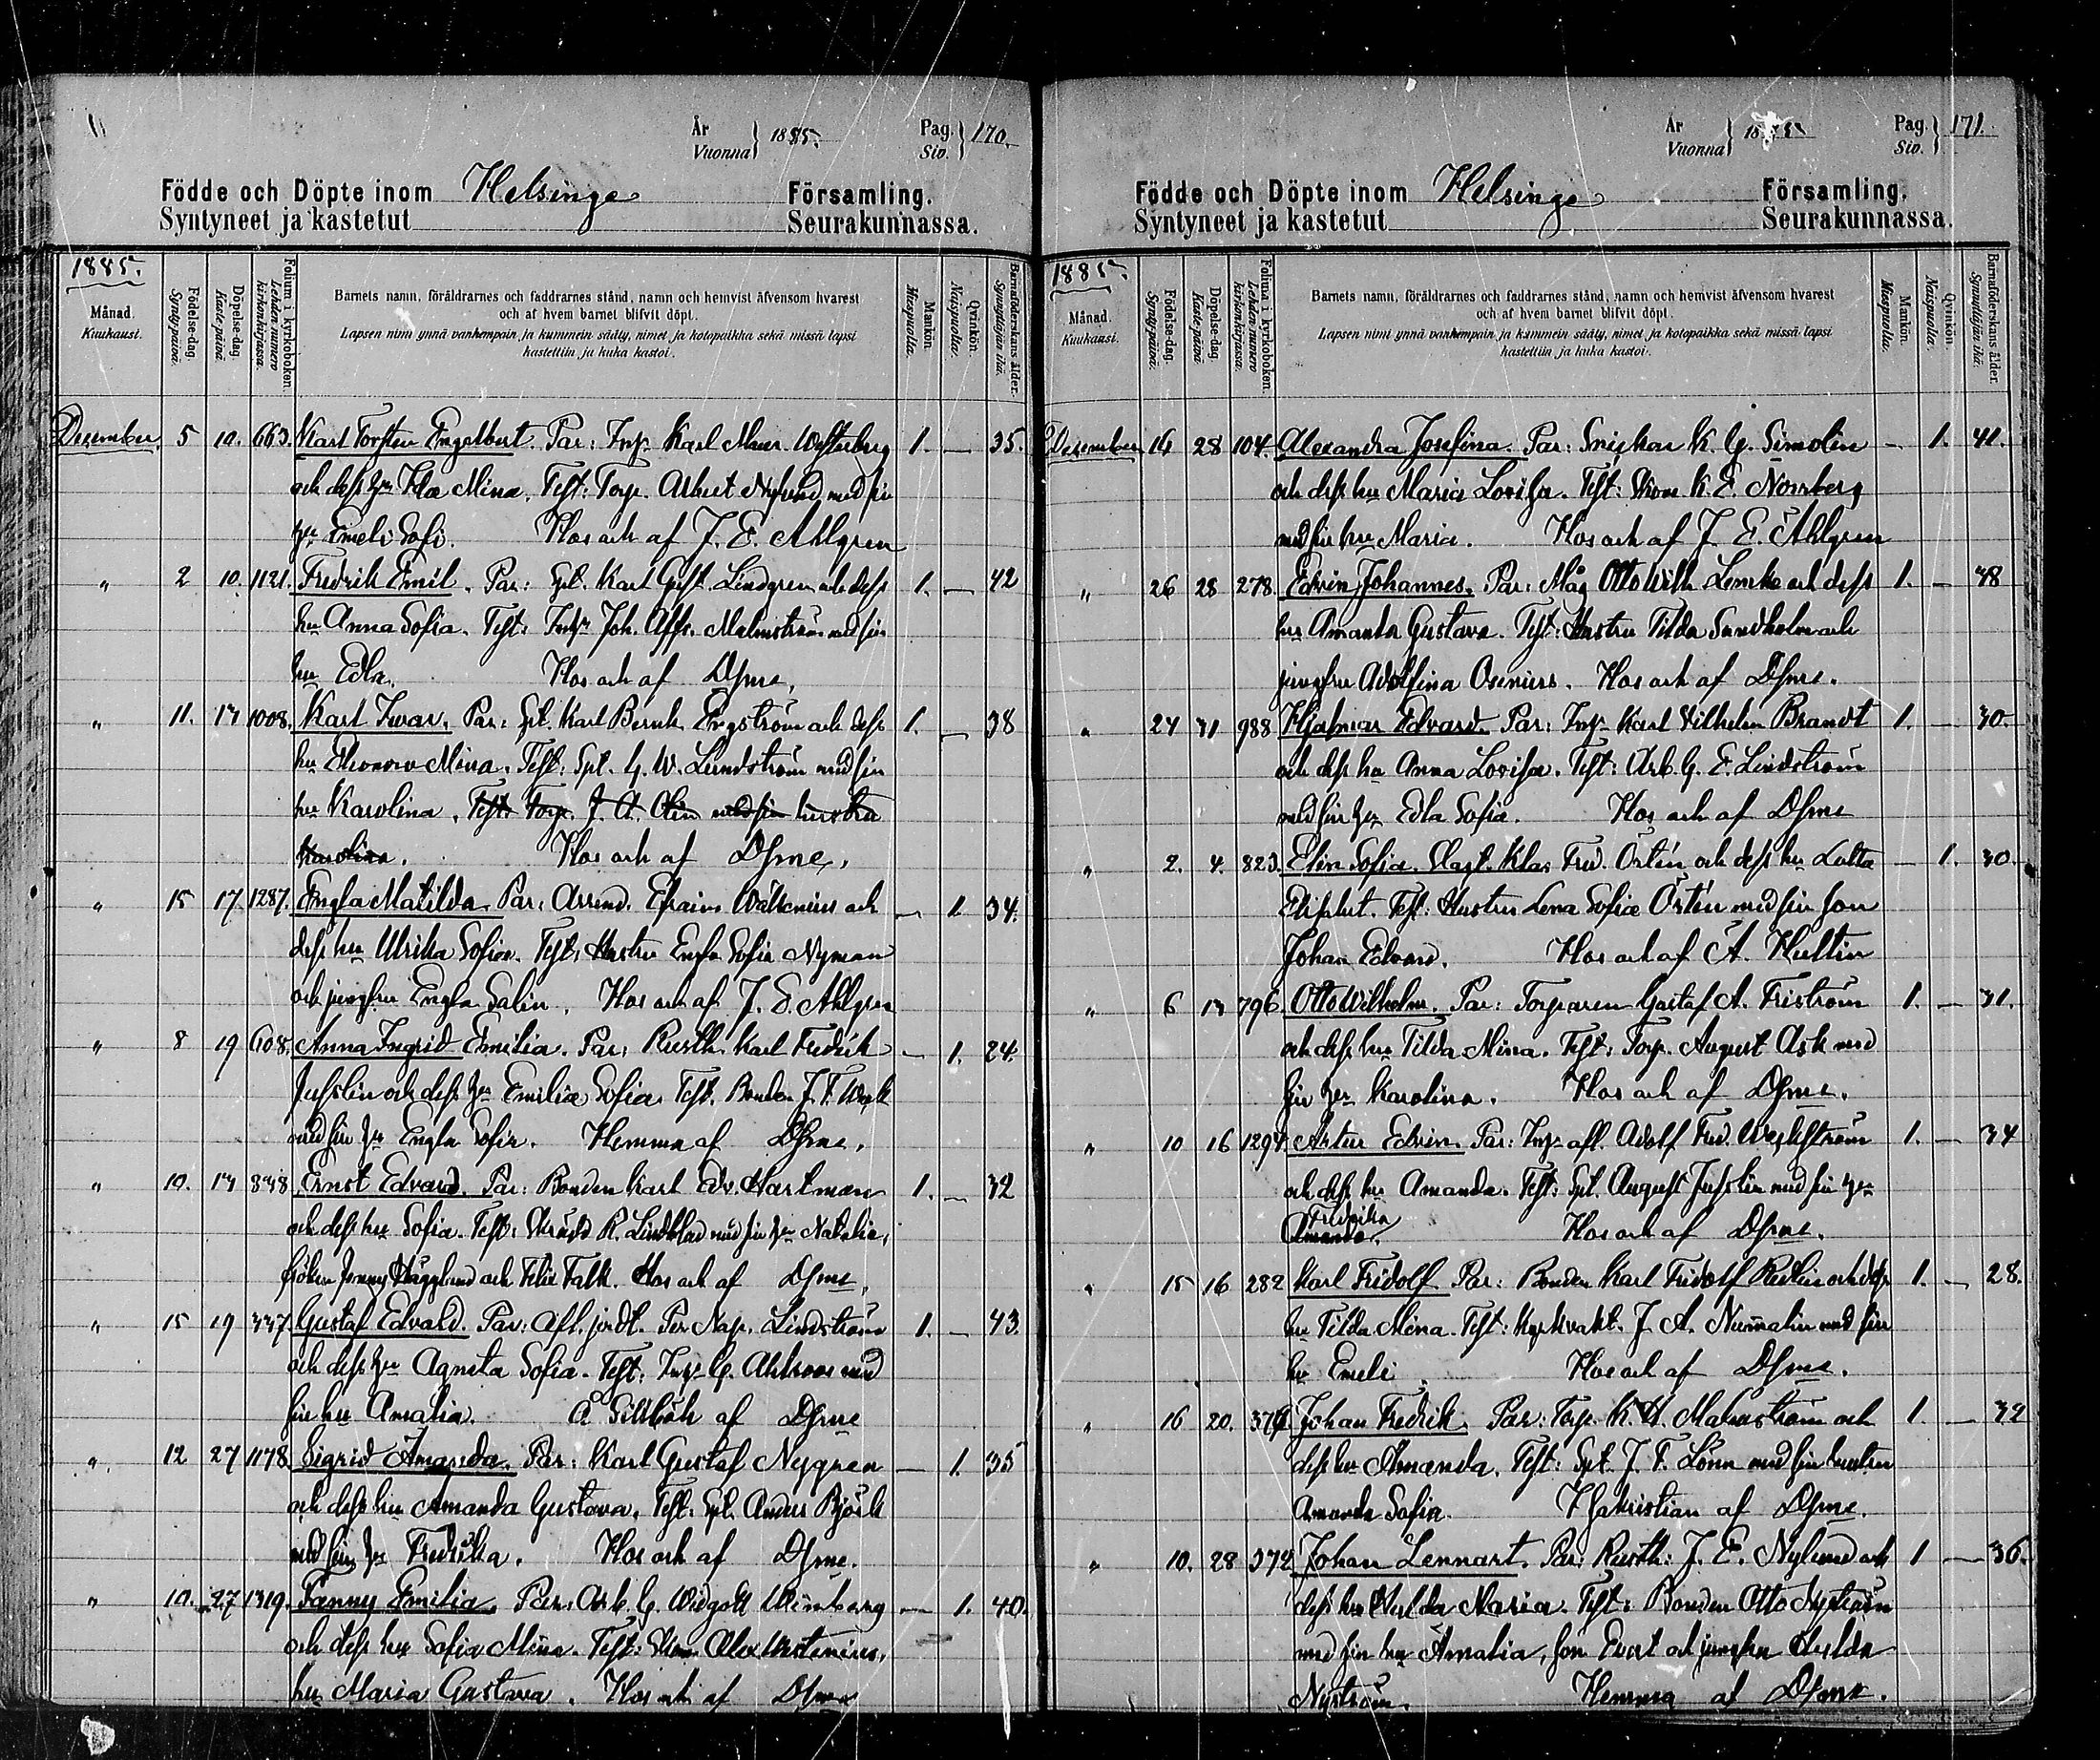 År
Vuonna } 1885.
Pag.
Siv. } 170.
Födde och Döpte inom Helsinge Församling.
Syntyneet ja kastetut Seurakunnassa.
1885.
Månad.
Kuukausi.
Födelse-dag.
Synty-päivä.
Döpelse-dag.
Kaste-päivä.
Folium i kyrkoboken.
Lehden numero kirkonkirjassa.
Barnets namn, föräldrarnes och faddrarnes stånd, namn och hemvist äfvensom hvarest
och af hvem barnet blifvit döpt.
Lapsen nimi ynnä vanhempain ja kummein sääty, nimet ja kotopaikka sekä missä lapsi
kastettiin ja kuka kastoi.
Mankön.
Miespuolia.
Qvinkön.
Naispuolia.
Barnaföderskans ålder.
Synnyttäjän ikä.
December 5 10. 663. Karl Torsten Engelbert. Par: Karl Westerberg 1. — 35.
och dess Ida Mina. Test: Torp. Albert Nylund med sin
Emeli Sofi. Hos och af J. E. Ahlgren
" 2 10. 1121. Fredrik Emil. Par: Spt. Karl Gust. Lindgren och dess 1. — 42
hu Anna Sofia. Test: Joh. Malmström med sin
hu Edla. Hos och af Dsme.
" 11. 17 1008. Karl Ivar. Par: Spt. Karl Bernh. Engström och dess 1. — 38
hu Eleonora Mina. Test: Spt. G. W. Lundström med sin
hu Karolina. Test Torp. J. A. Olin med sin hustru
Karolina. Hos och af Dsme.
" 15 17. 1287. Engla Matilda. Par: Arrend. Efraim och — 1. 34.
dess hu Ulrika Sofia. Test: Hustru Engla Sofia Nyman
och jungfru Engla Salin. Hos och af J. E. Ahlgren
" 8 19 608. Anna Ingrid Emilia. Par: Rusth. Karl Fredrik — 1. 24.
Jusslin och dess Emilia Sofia. Test. Bonden J. F. Weck
med sin Engla Sofia. Hemma af Dsme.
" 10. 13 838. Ernst Edvard. Par: Bonden Karl Edv. Hartman 1. — 32
och dess hu Sofia. Test: K. Lindblad med sin Natalia,
fröken Jenny Hägglund och Felix Falk. Hos och af Dsme.
" 15 19 337. Gustaf Edvald. Par: Afl. jordt. Per Nap. Lindström 1. — 43.
och dess Agneta Sofia. Test: G. Ahlroos med
sin hu Amalia. Å Sillböle af Dsme
" 12 27 1178. Sigrid Amanda. Par: Karl Gustaf Nygren — 1. 35
och dess hu Amanda Gustava. Test: Spt. Anders Björk
med sin Fredrika. Hos och af Dsme.
" 10. 27 1319. Fanny Emilia. Par: Arb. G. Widgott Winberg — 1. 40.
och dess hu Sofia Mina. Test: Alex Westenius,
hu Maria Gustava. Hos och af Dsme
År
Vuonna } 1885
Pag.
Siv. } 171.
Födde och Döpte inom Helsinge Församling.
Syntyneet ja kastetut Seurakunnassa.
1885.
Månad.
Kuukausi.
Födelse-dag.
Synty-päivä.
Döpelse-dag.
Kaste-päivä.
Folium i kyrkoboken.
Lehden numero kirkonkirjassa.
Barnets namn, föräldrarnes och faddrarnes stånd, namn och hemvist äfvensom hvarest
och af hvem barnet blifvit döpt.
Lapsen nimi ynnä vanhempain ja kummein sääty, nimet ja kotopaikka sekä missä lapsi
kastettiin ja kuka kastoi.
Mankön.
Miespuolia.
Qvinkön.
Naispuolia.
Barnaföderskans ålder.
Synnyttäjän ikä.
December 14 28 104. Alexandra Josefina. Par: Snickar K. G. Simolin — 1. 41.
och dess hu Maria Lovisa. Test: K. E. Norrberg
med sin hu Maria. Hos och af J. E. Ahlgren
" 26 28 278. Edvin Johannes. Par: Måg Otto Wilh. Lemke och dess 1. — 38
hu Amanda Gustava. Test: Hustru Tilda Sundholm och
jungfru Adolfina Osenius. Hos och af Dsme.
" 24 31 988 Hjalmar Edvard. Par: Karl Vilhelm Brandt 1. — 30.
och dess hu Anna Lovisa. Test: Arb. G. E. Lindström
med sin Edla Sofia. Hos och af Dsme
" 2. 4. 823. Elin Sofia. Klas Fred. Östén och dess hu Lotta — 1. 30.
Elisabet. Test: Hustru Lena Sofia Östén med sin son
Johan Edvard. Hos och af A. Hultin
" 6 13 796. Otto Wilhelm. Par: Torparen Gustaf A. Friström 1. — 31.
och dess hu Tilda Mina. Test: Torp. August Ask med
sin Karolina. Hos och af Dsme.
" 10 16 1294. Artur Edvin. Par: afl. Adolf Fred. 1. — 34
och dess hu Amanda. Test: Spt. August Jusslin med sin
Fredrika
Amanda. Hos och af Dsme.
" 15 16 282 Karl Fridolf Par: Bonden Karl Fridolf och dess 1. — 28.
hu Tilda Mina. Test: Kyrkvakt. J. A. Nummelin med sin
hu Emeli Hos och af Dsme.
" 16 20. Johan Fredrik. Par: Torp. K. H. Malmström och 1. — 32
dess hu Amanda. Test: Spt. J. F. Lönn med sin hustru
Amanda Sofia. I Sakristian af Dsme.
" 10. 28 372 Johan Lennart. Par: Rusth: J. E. Nylund och 1 — 36.
dess hu Hulda Maria. Test: Bonden Otto Nyström
med sin hu Amalia, son Evert och jungfru Hulda
Nyström. Hemma af Dsme.